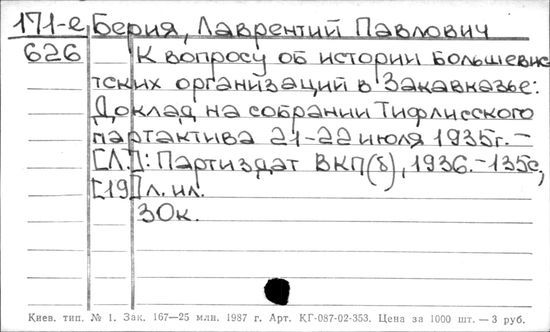 171-е Берия, Лаврентий Павлович
626 К вопросу об истории Большевис
тских организаций в Закавказье:
Доклад на собрании Тифлисского
партактива 21-22 июля 1935г. -
[Л.]: Партиздат ВКП(б), 1936. - 135с,
[19]л. ил.
30к.
Киев. тип. № 1. Зак. 167—25 млн. 1987 г. Арт. КГ-087-02-353. Цена за 1000 шт. — 3 руб.